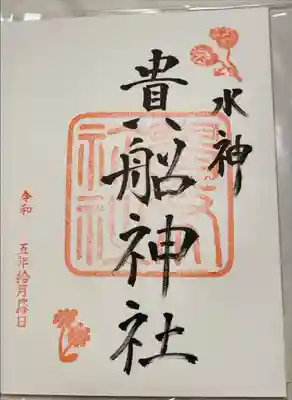 水神
貴船神社
令和 五年拾月日